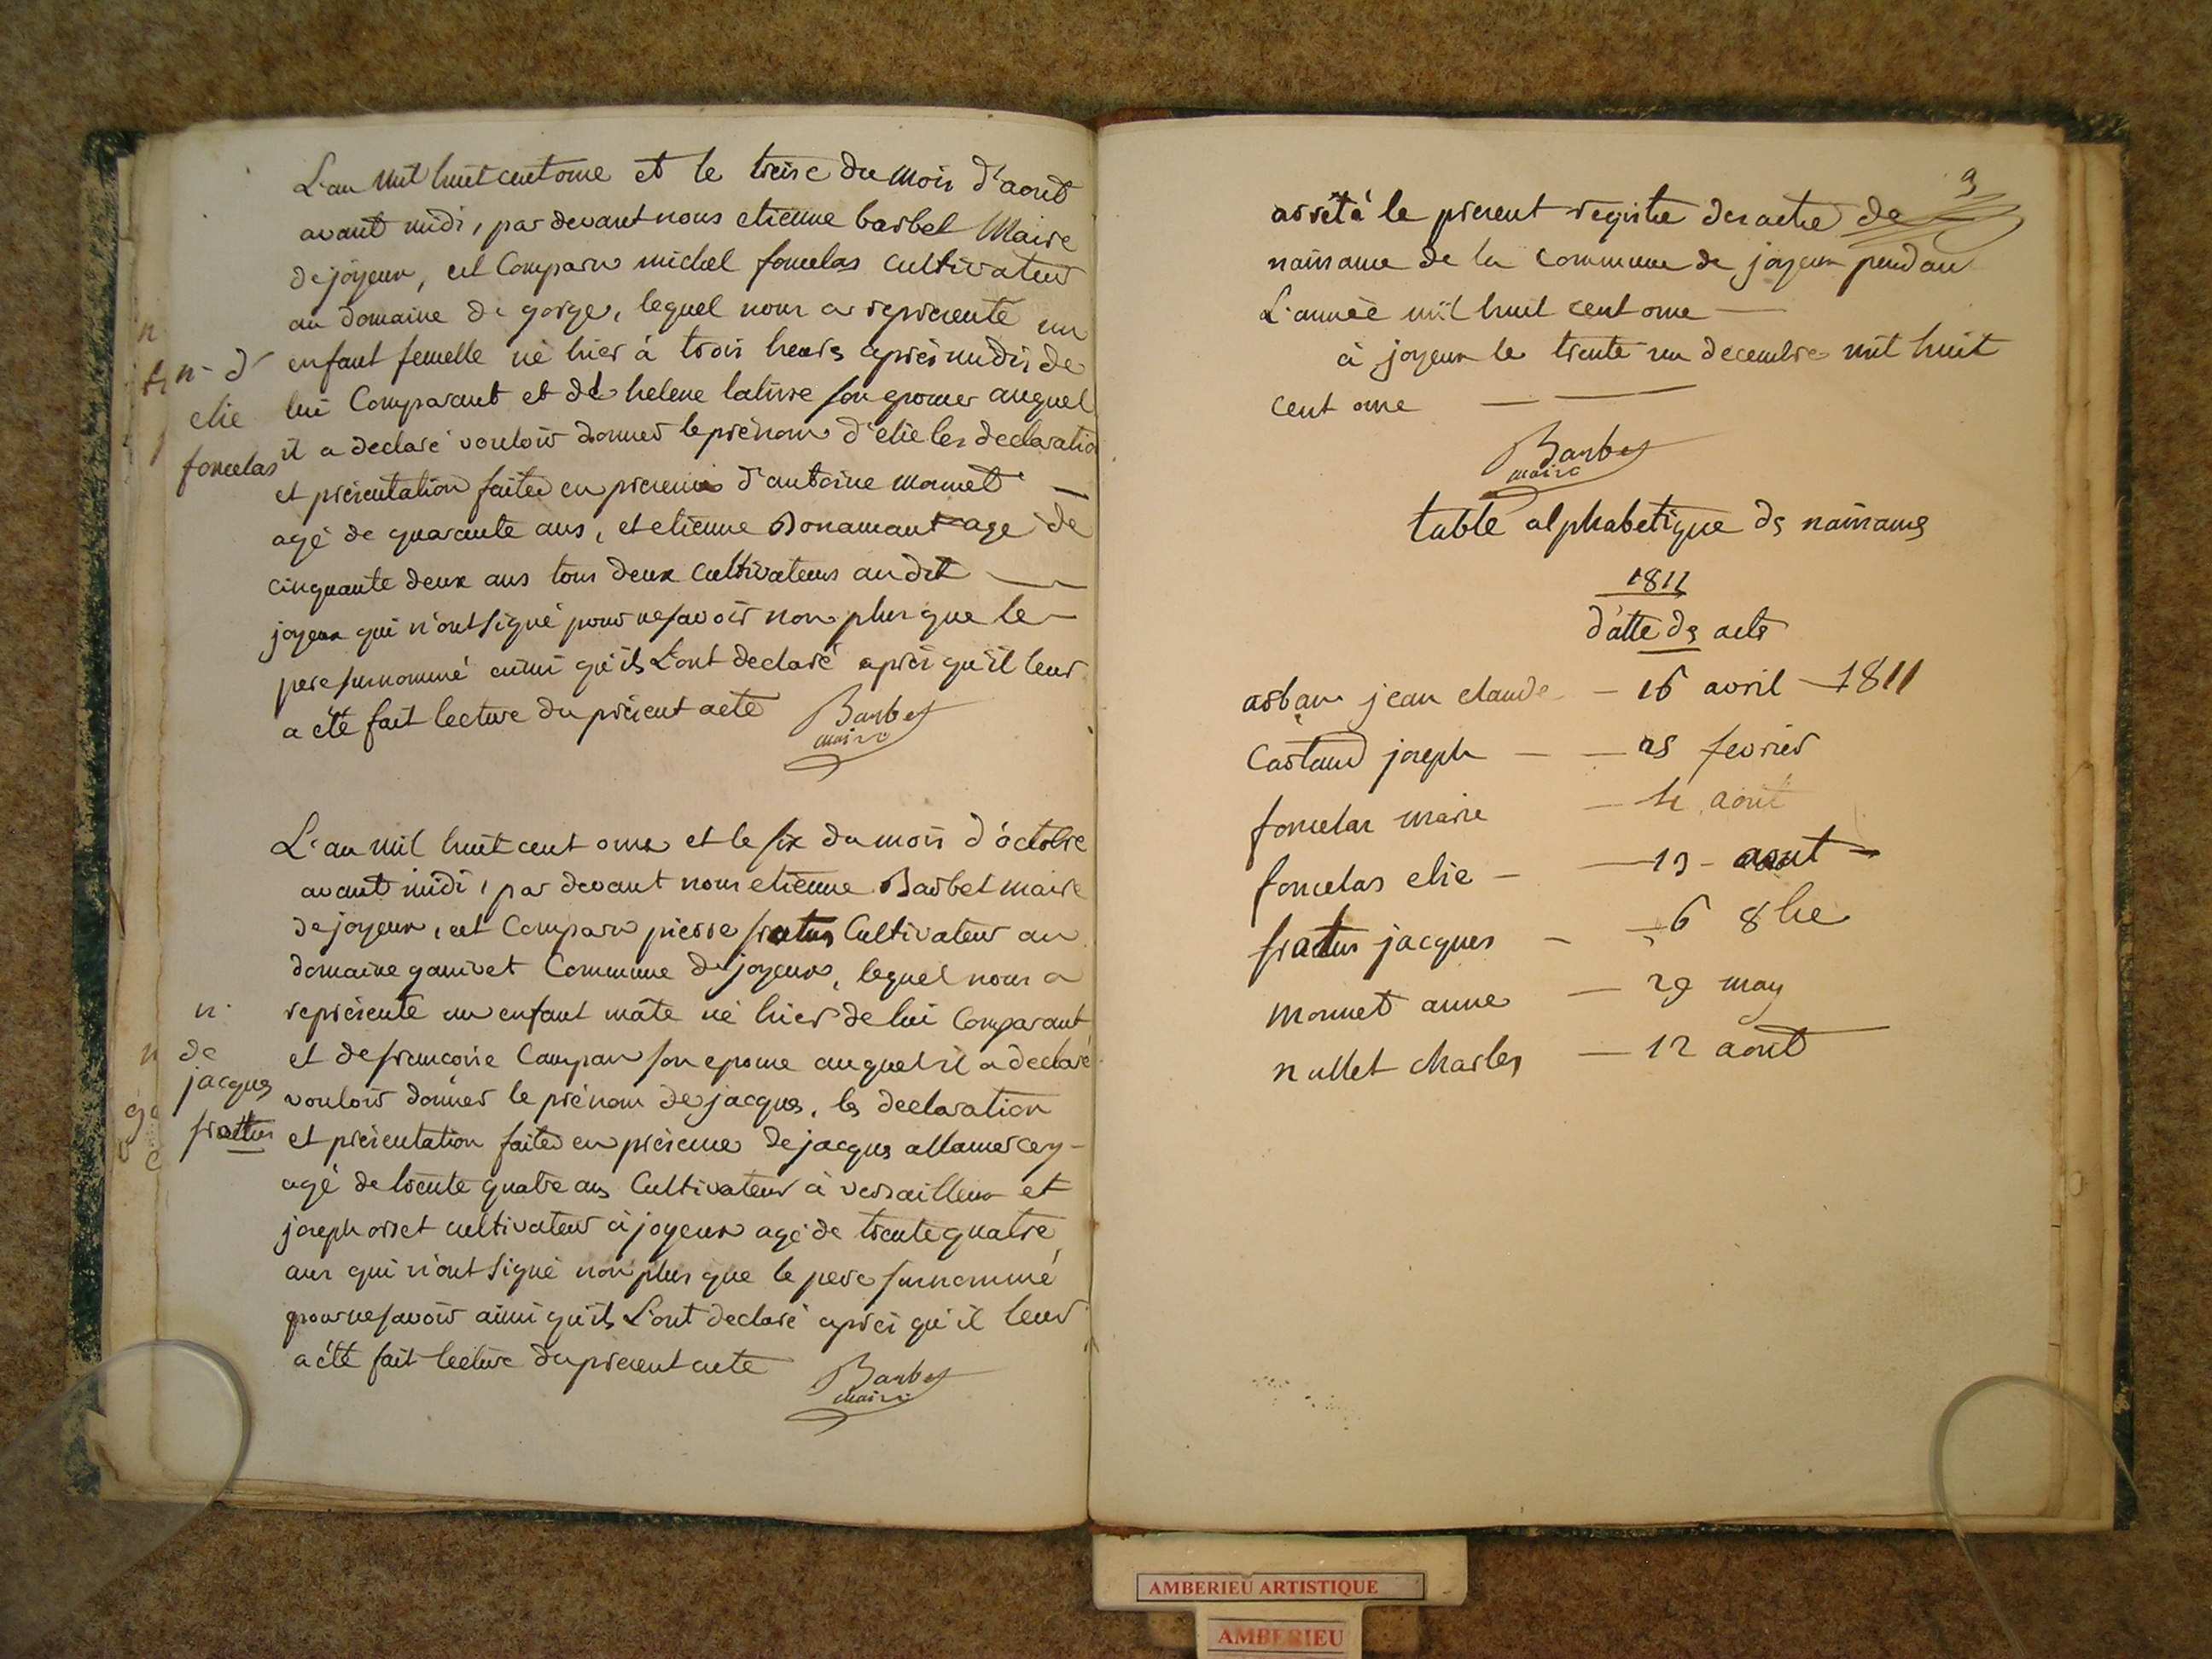 L'an mil huit cent onze et le treize du mois d'aout
avant midi, par devant nous etienne barbet Maire
de joyeux, est Comparu michel foncelas cultivateur
au domaine de gorge, lequel nous a representé un
enfant femelle né hier à trois heures après midi de
lui Comparant et de helene son epouse auquel
il a declaré vouloir donner le prénom d'elie les declaration
et présentation faites en presence d'antoine monnet
agé de quarante ans, et etienne Bonamant age de
cinquante deux ans tous deux cultivateurs audit
joyeux qui n'ont signé pour ne savoir non plus que le
pere surnommé ainsi qu'ils L'ont declaré après qu'il leur
a été fait lecture du présent acte
Barbet
maire
n. d'
elie
foncelas
L'an mil huit cent onze et le six du mois d'octobre
avant midi, par devant nous etienne Barbet maire
de joyeux, est Comparu pierre frattus Cultivateur au
domaine ganivet Commune de joyeux, lequel nous a
représenté un enfant mâle né hier de lui Comparant
et de francoise Campan son epouse auquel il a declaré
vouloir donner le prénom de jacques, les declaration
et présentation faites en présence de jacques allamercey
agé de trente quatre ans Cultivateur à versailleux et
joseph orset cultivateur à joyeux agé de trente quatre
ans qui n'ont signé non plus que le pere surnommé
pour ne savoir ainsi qu'ils L'ont declaré après qu'il leur
a été fait lecture du present acte
Barbet
maire
n.
de
jacques
frattus
9
arrêté le present registre des actes de
naissance de la commune de joyeux pendant
L'année mil huit cent onze
à joyeux le trente un decembre mil huit
cent onze
Barbet
maire
table alphabetique ds naissances
1811
d'atte ds acts
arban jean claude — 16 avril — 1811
Castand joseph — 25 fevrier
foncelas marie — 4 août
foncelas elie — 13 - aout
frattus jacques — 6 8bre
monnet anne — 29 may
nullet charles — 12 août
AMBERIEU ARTISTIQUE
AMBERIEU